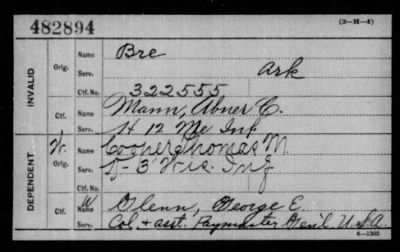 482894
(3-H-4)
INVALID
Orig.
Name Bre
Serv. Ark
Ctf. No. 322555
Ctf.
Name Mann, Abner C.
Serv. H 12 Me Inf
DEPENDENT
Orig.
W. Name Cooper Thomas M.
Serv. 3 Wis. Inf
Ctf. No.
Ctf.
W Name Glenn, George E.
Serv. Col. + asst. Paymaster Gen'l. U.S.A